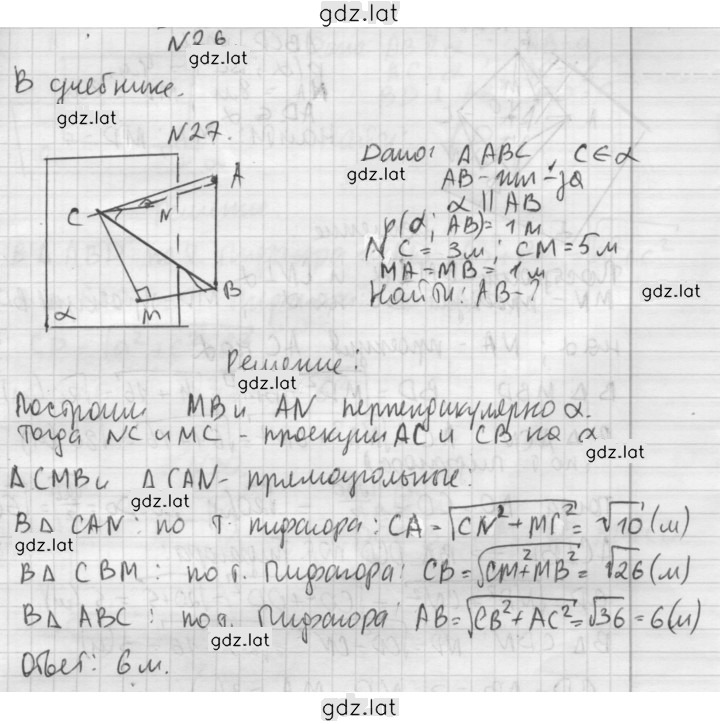 gdz.lat
N26
gdz.lat
В учебнике.
gdz.lat
N27.
Дано: △ABC, C∈α
gdz.lat
AB - гип-за
α || AB
ρ(α; AB) = 1 м
NC = 3м; CM = 5м
MA = MB = 1м
Найти: AB - ?
gdz.lat
A
C
N
B
M
α
Решение:
gdz.lat
Построим MB и AN перпендикулярно α.
Тогда NC и MC - проекции AC и CB на α
gdz.lat
△CMB и △CAN - прямоугольные:
gdz.lat
В △ CAN: по т. Пифагора: CA = √CN² + MC² = √10 (м)
gdz.lat
В △ CBM: по т. Пифагора: CB = √CM² + MB² = √26 (м)
В △ ABC: по т. Пифагора AB = √CB² + AC² = √36 = 6 (м)
gdz.lat
Ответ: 6 м.
gdz.lat